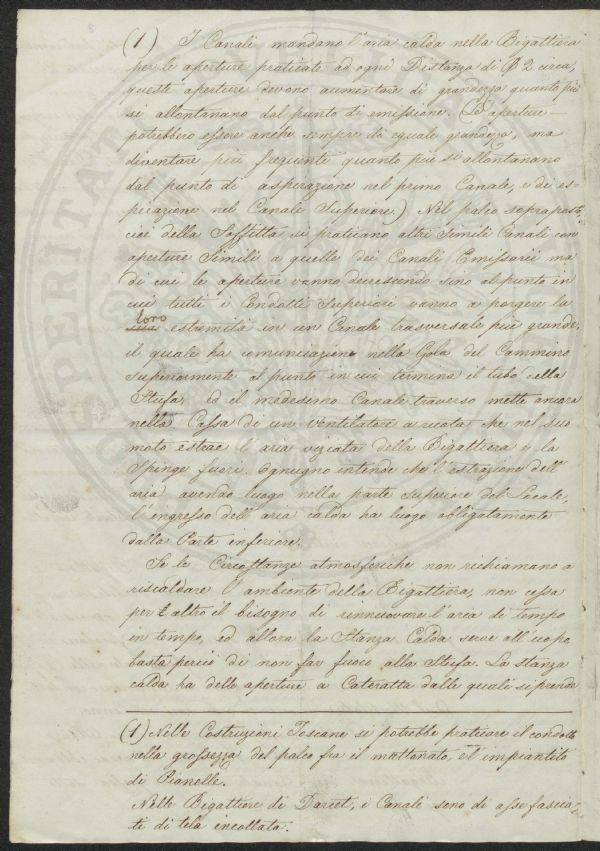 (1) I Canali mandano l'aria calda nella Bigattiera
per le aperture praticate ad ogni Distanza di B 2 circa,
queste aperture devono aumentare di grandezza quanto più
si allontanano dal punto di emissione. (Le aperture
potrebbero essere anche sempre di eguale grandezza, ma
diventare più frequenti quanto più si allontanano
dal punto di aspirazione nel primo Canale, e di es-
pirazione nel Canale Superiore.) Nel palco soprapposto,
cioè della Soffitta si praticano altri simili Canali con
aperture simili a quelle dei Canali Emissarii ma
di cui le aperture vanno decrescendo sino al punto in
cui tutti i Condotti Superiori vanno a porgere la
loro estremità in un Canale trasversale più grande,
il quale ha comunicazione nella Gola del Cammino
superiormente al punto in cui termina il tubo della
Stufa; ed il medesimo Canale traverso mette ancora
nella Cassa di un Ventilatore a ruota che nel suo
moto estrae l'aria viziata della Bigattiera e la
spinge fuori. Ognuno intende che l'estrazione dell'
aria avendo luogo nella parte superiore del Locale,
l'ingresso dell'aria calda ha luogo obbligatamente
dalla Parte inferiore.
Se le Circostanze atmosferiche non richiamano a
riscaldare l'ambiente della Bigattiera, non cessa
per altro il bisogno di rinnuovare l'aria di tempo
in tempo, ed allora la Stanza Calda serve all'uopo,
basta perciò di non far fuoco alla Stufa. La stanza
calda ha delle aperture a Cateratta dalle quali si prende
(1) Nelle Costruzioni Toscane si potrebbe praticare il condotto
nella grossezza del palco fra il mattonato, e l'impiantito
di Pianelle.
Nelle Bigattiere di Darcet, i Canali sono di asse fascia-
te di tela incollata.